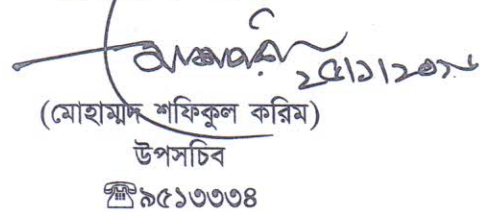 ২৫/১/২০১৬
(মোহাম্মদ শফিকুল করিম)
উপসচিব
☎৯৫১৩৩৩৪